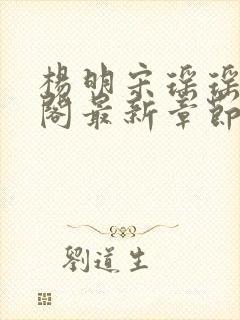 楊明宋瑤瑤
閣最新章節
劉道生